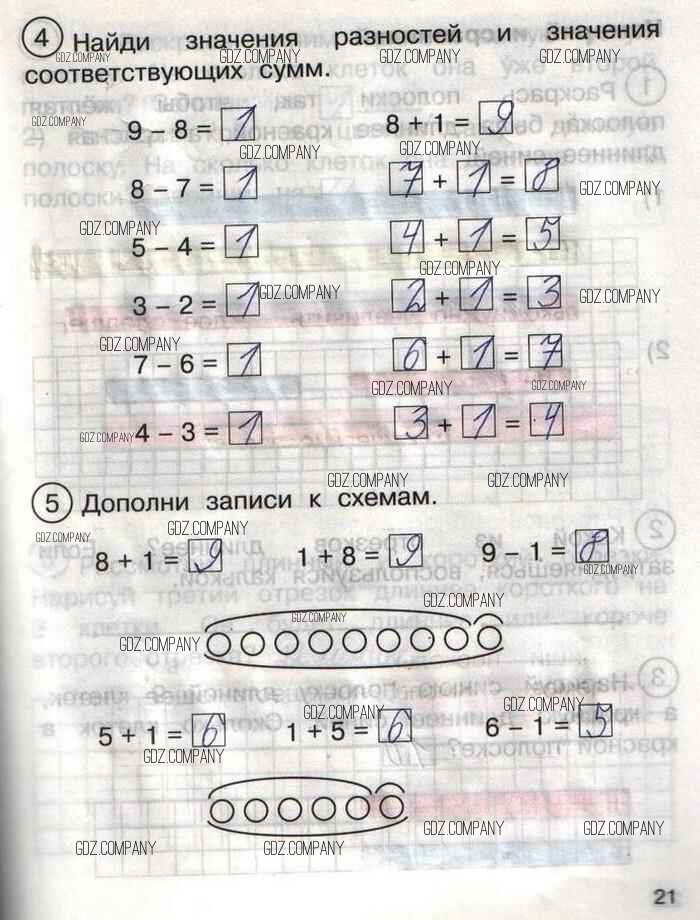 4 Найди значения разностей и значения
соответствующих сумм.
9 – 8 = 1 8 + 1 = 9
8 – 7 = 1 7 + 1 = 8
5 – 4 = 1 4 + 1 = 5
3 – 2 = 1 2 + 1 = 3
7 – 6 = 1 6 + 1 = 7
4 – 3 = 1 3 + 1 = 4
5 Дополни записи к схемам.
8 + 1 = 9 1 + 8 = 9 9 – 1 = 8
5 + 1 = 6 1 + 5 = 6 6 – 1 = 5
GDZ.COMPANY
21